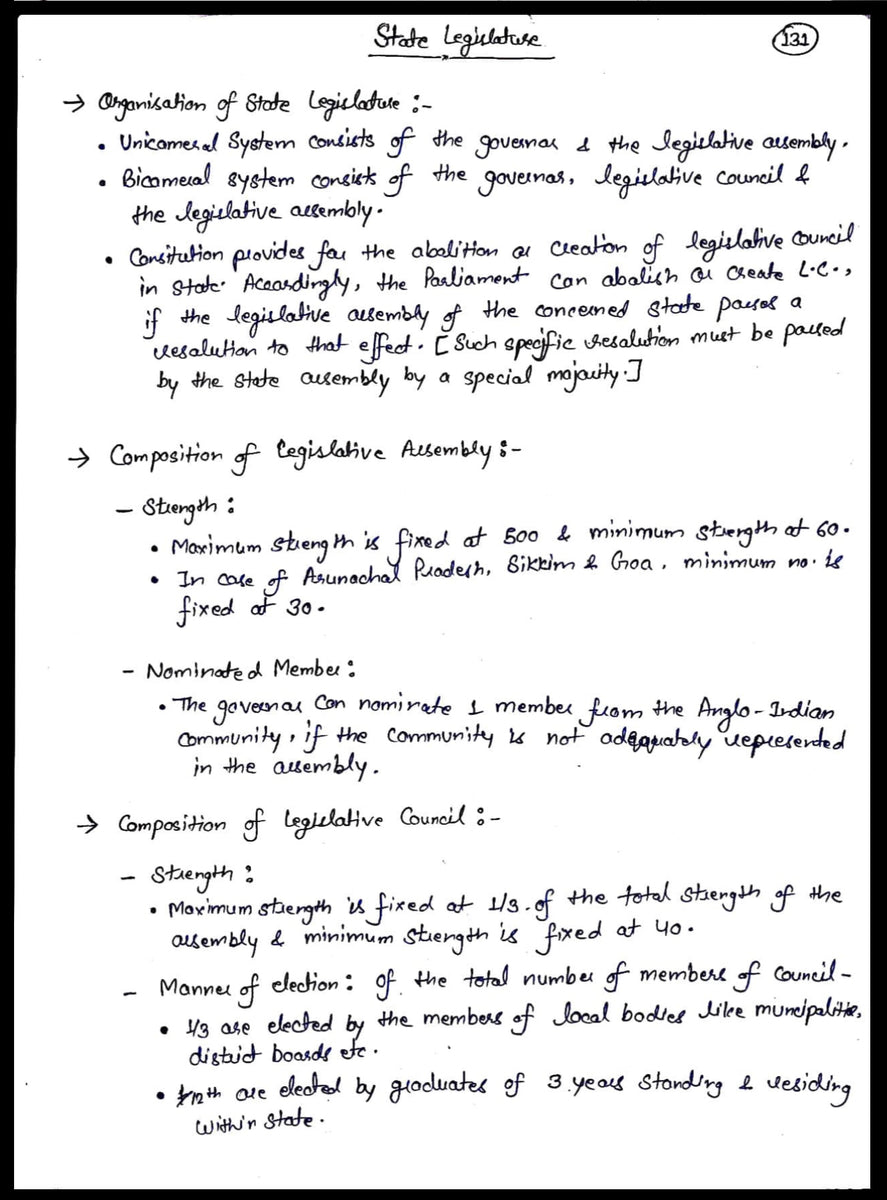 State Legislature
131
→ Organisation of State Legislature :-
• Unicameral System consists of the governor & the legislative assembly.
• Bicameral system consists of the governor, legislative council &
the legislative assembly.
• Consitution provides for the abolition or creation of legislative council
in state. Accordingly, the Parliament can abolish or create L.C.,
if the legislative assembly of the concerned state passes a
resolution to that effect. [Such specific resolution must be passed
by the state assembly by a special majority.]
→ Composition of Legislative Assembly :-
- Strength :
• Maximum strength is fixed at 500 & minimum strength at 60.
• In case of Arunachal Pradesh, Sikkim & Goa, minimum no. is
fixed at 30.
- Nominated Member :
• The governor can nominate 1 member from the Anglo-Indian
community, if the community is not adequately represented
in the assembly.
→ Composition of Legislative Council :-
- Strength :
• Maximum strength is fixed at 1/3 of the total strength of the
assembly & minimum strength is fixed at 40.
- Manner of election : Of the total number of members of council -
• 1/3 are elected by the members of local bodies like muncipalities,
district boards etc.
• 1/12th are elected by graduates of 3 years standing & residing
within state.